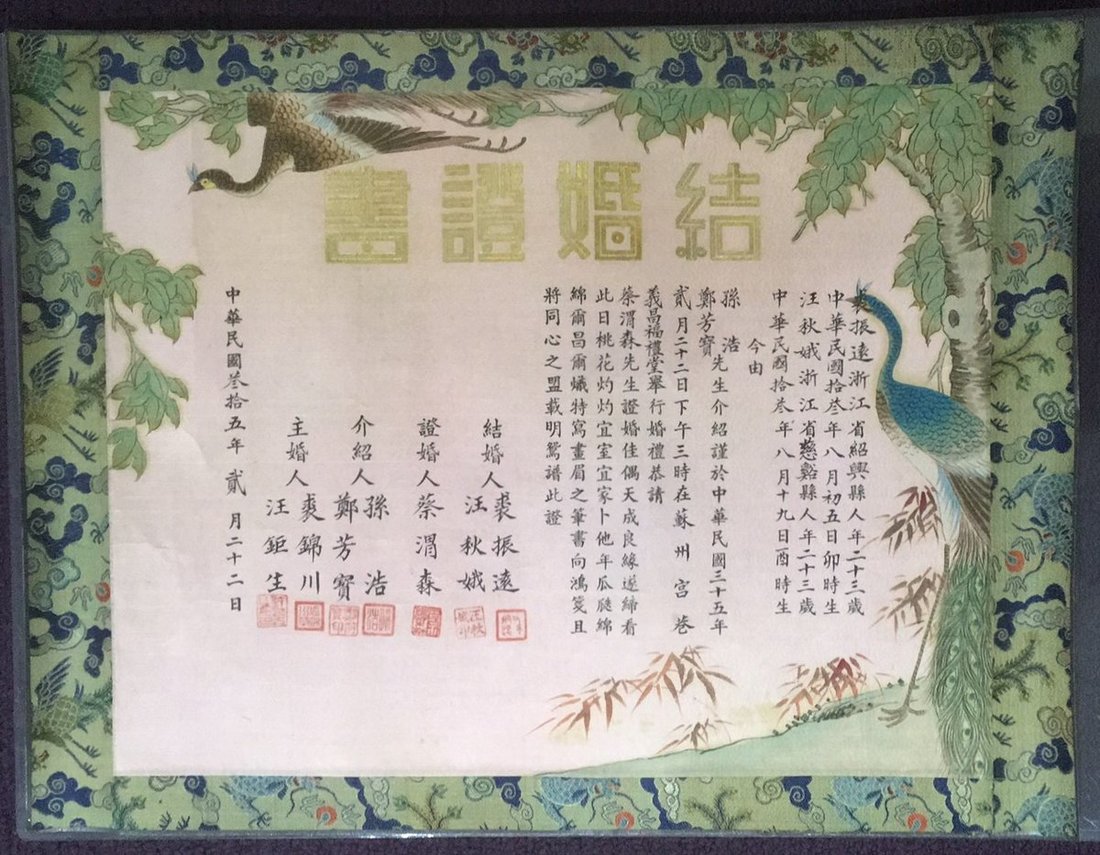 結婚證書
裘振遠浙江省紹興縣人年二十三歲
中華民國拾叁年八月初五日卯時生
汪秋娥浙江省慈谿縣人年二十三歲
中華民國拾叁年八月十九日酉時生
今由
孫浩
鄭芳寶先生介紹謹於中華民國三十五年
貳月二十二日下午三時在蘇州宮巷
義昌福禮堂舉行婚禮恭請
蔡渭森先生證婚佳偶天成良緣遂締看
此日桃花灼灼宜室宜家卜他年瓜瓞綿
綿爾昌爾熾特寫畫眉之筆書向鴻箋且
將同心之盟載明鴛譜此證
結婚人 裘振遠
汪秋娥
證婚人 蔡渭森
介紹人 孫浩
鄭芳寶
主婚人 裘錦川
汪鉅生
中華民國叁拾五年貳月二十二日